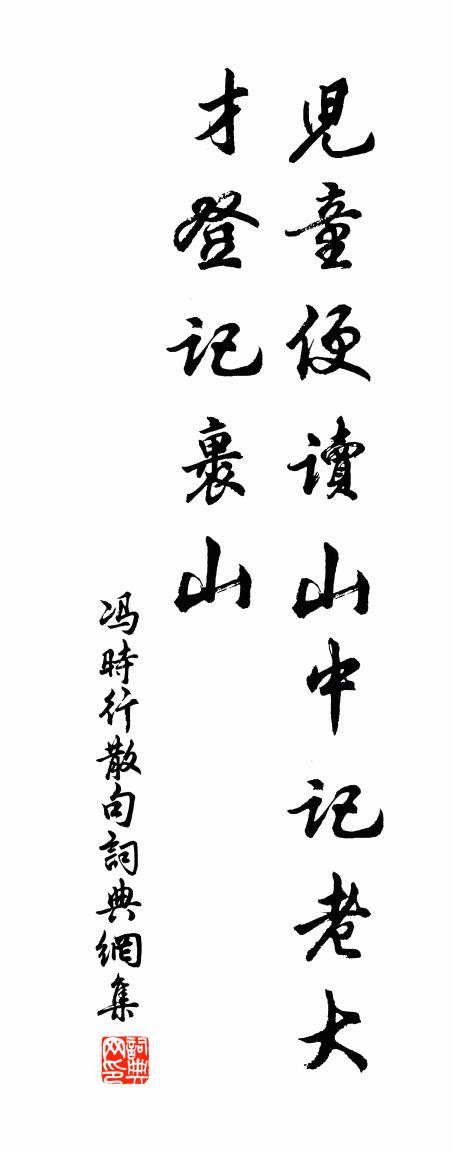 兒童便讀山中記老大
才登記裏山
冯時行散句詞典網集
詞典网印